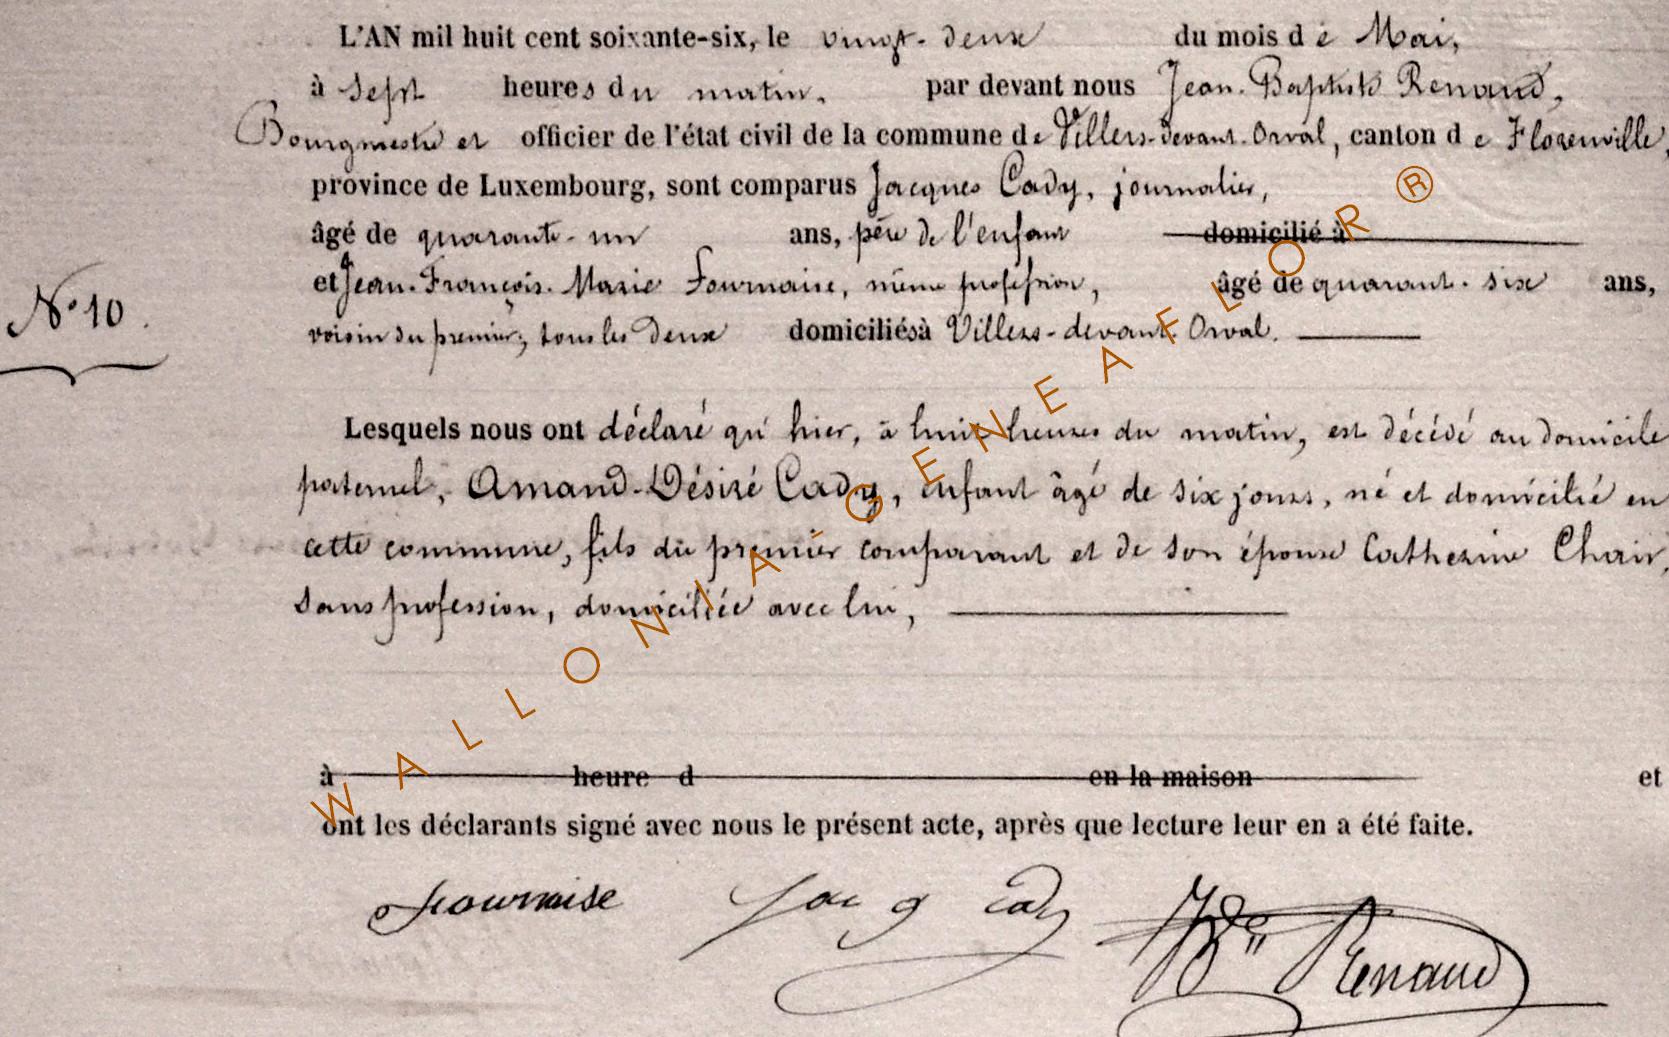 L'AN mil huit cent soixante-six, le vingt-deux du mois de Mai,
à sept heures du matin, par devant nous Jean-Baptiste Renaud,
Bourgmestre et officier de l'état civil de la commune de Villers-devant-Orval, canton de Florenville,
province de Luxembourg, sont comparus Jacques Cady, journalier,
âgé de quarante-un ans, père de l'enfant domicilié à
et Jean-François-Marie Fournaise, même profession, âgé de quarant-six ans,
N° 10.
voisin du premier, tous les deux domiciliés à Villers-devant-Orval.
Lesquels nous ont déclaré qu'hier, à huit heures du matin, est décédé au domicile
paternel, Amand-Désiré Cady, enfant âgé de six jours, né et domicilié en
cette commune, fils du premier comparant et de son épouse Catherine Chair,
sans profession, domiciliée avec lui,
à heure d en la maison et
ont les déclarants signé avec nous le présent acte, après que lecture leur en a été faite.
Fournaise Jacq Cady JBte Renaud
WALLONIA GENEAFLOR ®